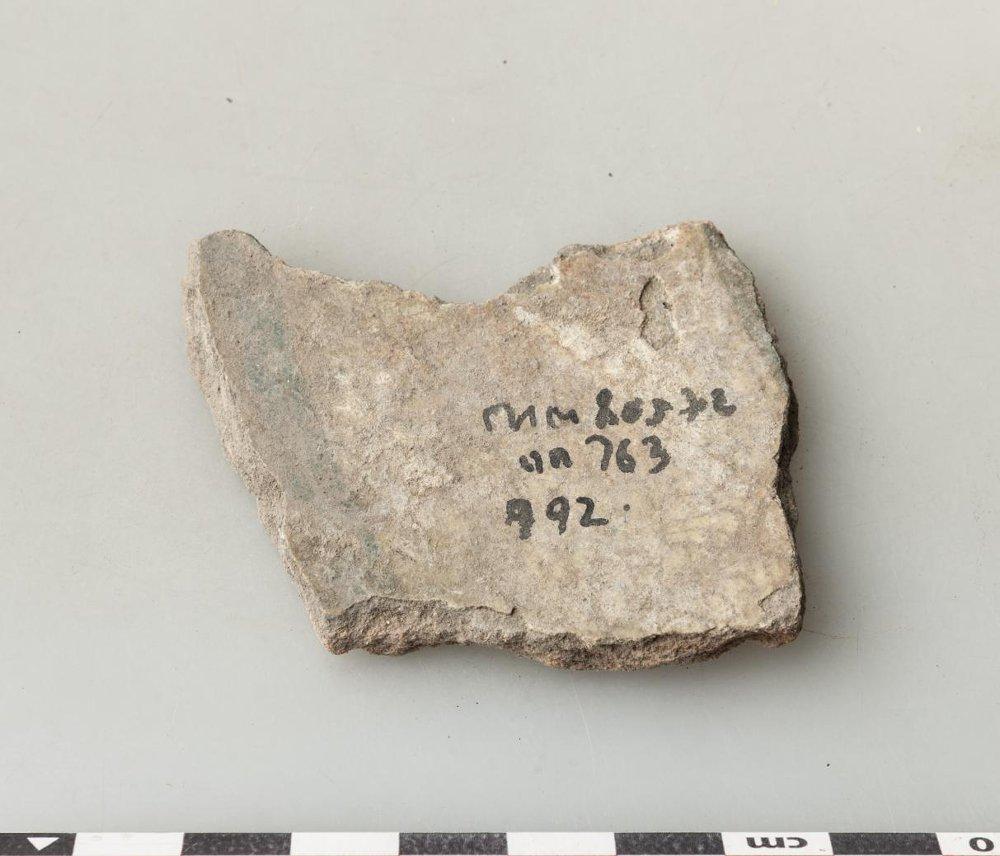 ГИМ 80572
оп 763
992.
cm
0